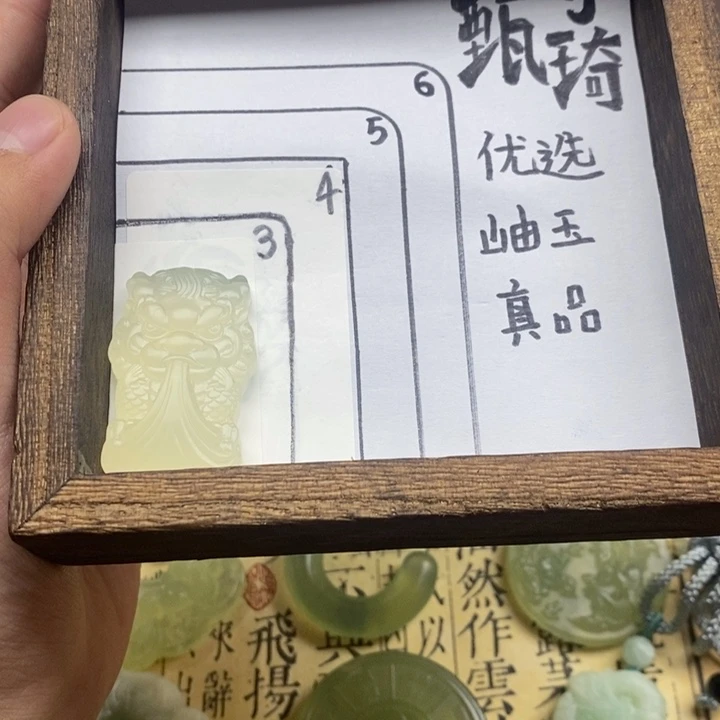 甄
琦
6
5
4
3
优选
岫玉
真品
飛揚
然作雲
以